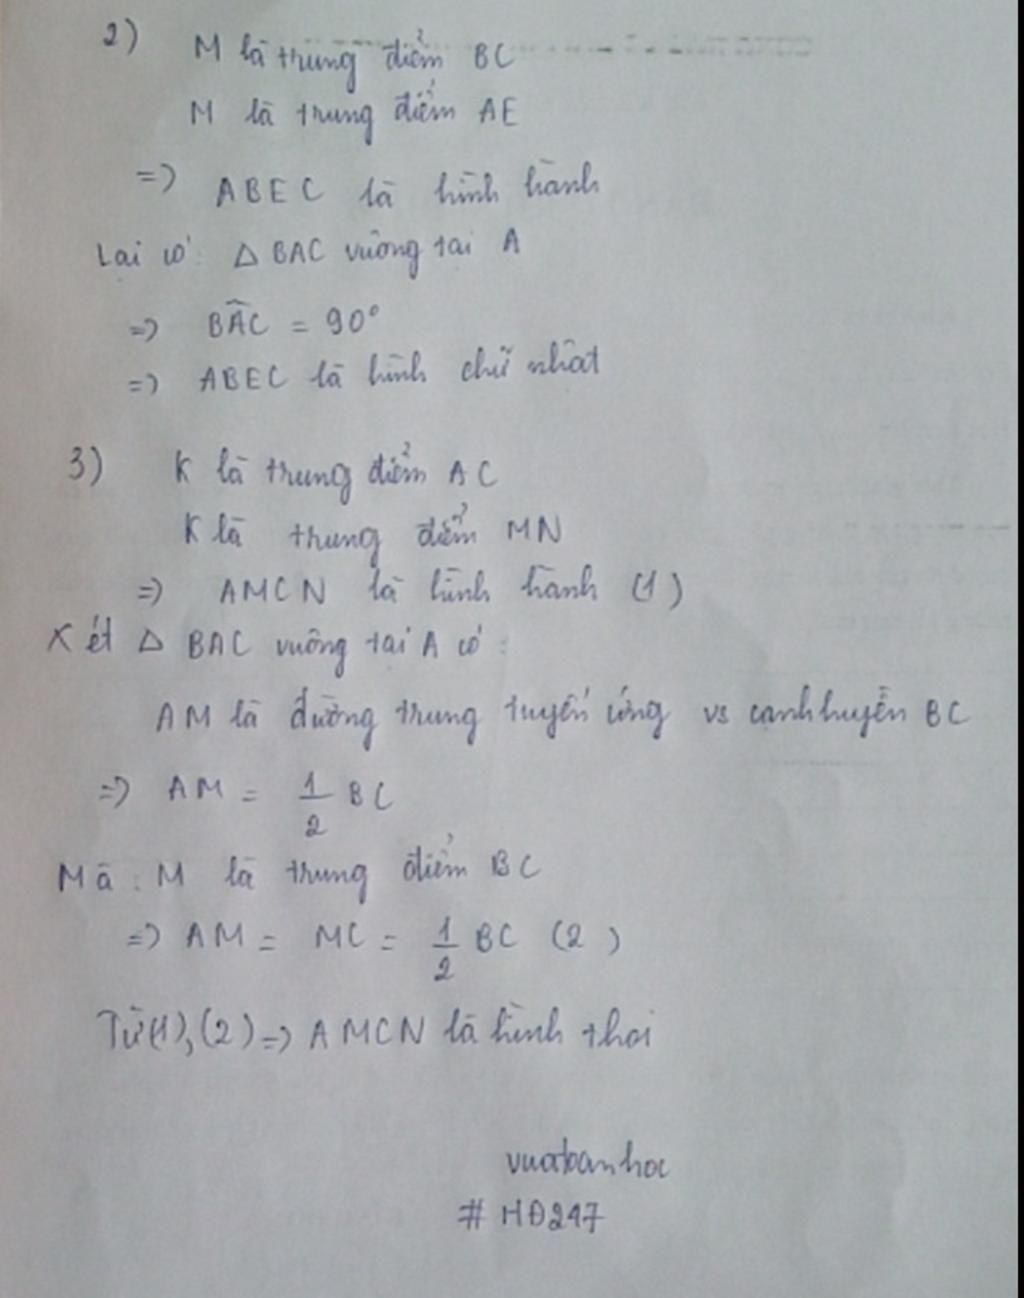 2) M là trung điểm BC
M là trung điểm AE
=> ABEC là hình hành
Lại có: Δ BAC vuông tại A
=> BÂC = 90°
=> ABEC là hình chữ nhật
3) K là trung điểm AC
K là trung điểm MN
=> AMCN là hình hành (1)
Xét Δ BAC vuông tại A có:
AM là đường trung tuyến ứng vs cạnh huyền BC
=> AM = 1/2 BC
Mà: M là trung điểm BC
=> AM = MC = 1/2 BC (2)
Từ (1), (2) => AMCN là hình thoi
vuatoanhoc
# HĐ247